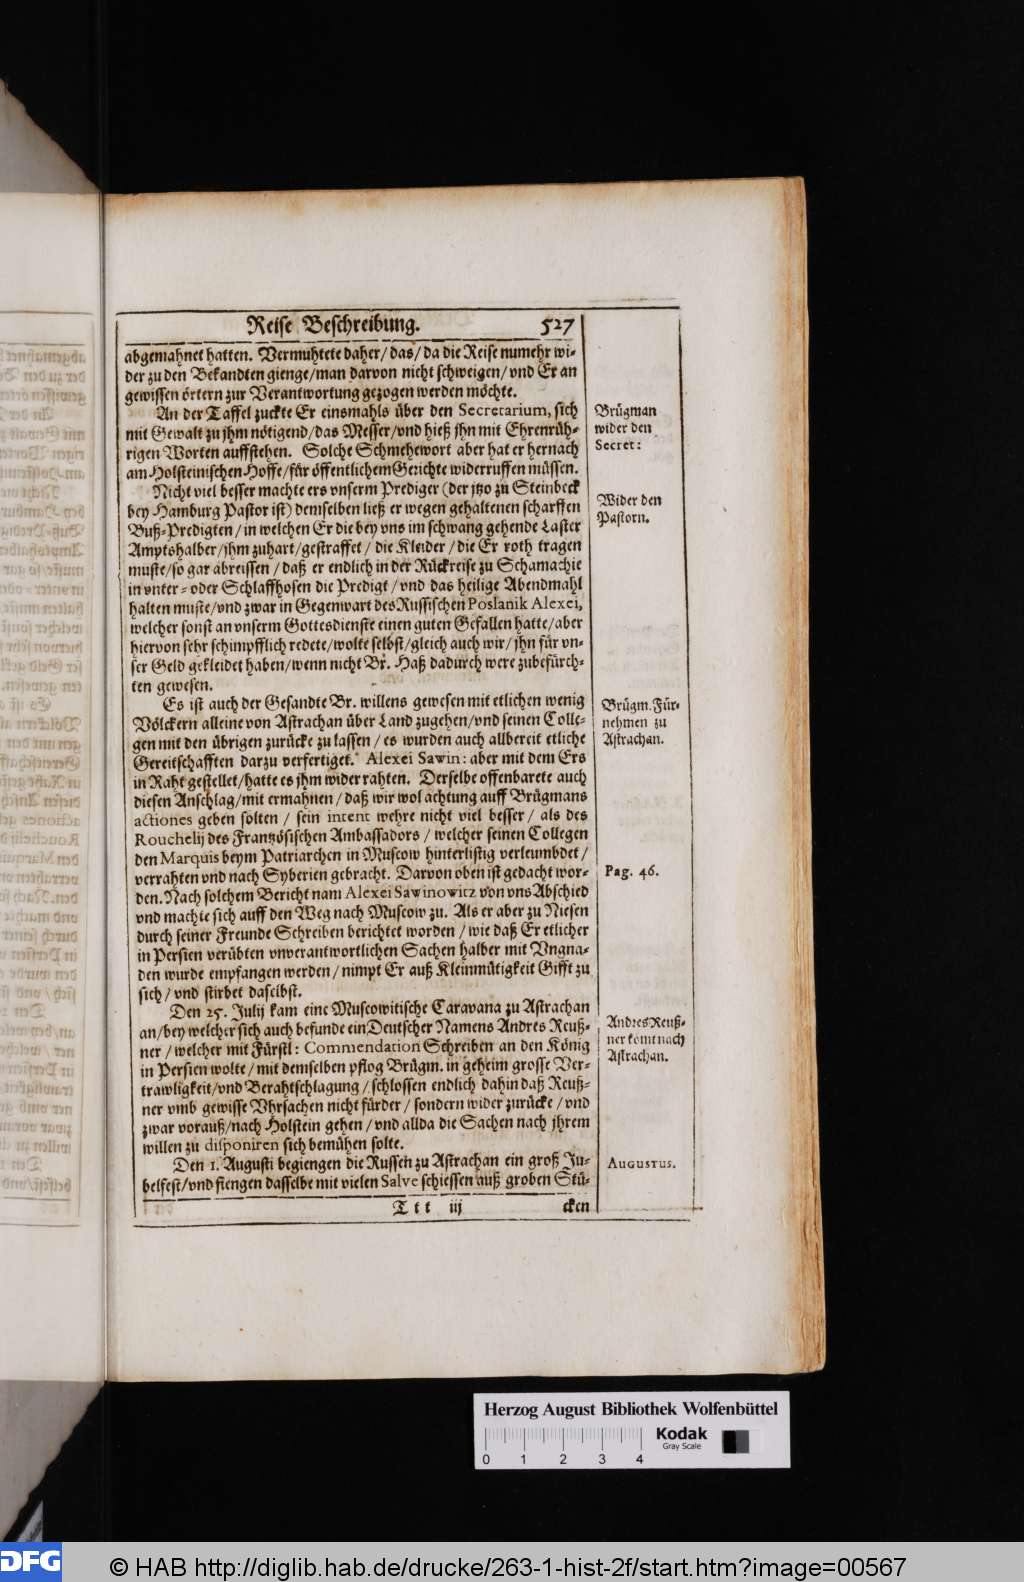 Reise Beschreibung. 527
abgemahnet hatten. Vermuhtete daher/das/da die Reise numehr wi-
der zu den Bekandten gienge/man darvon nicht schweigen/vnd Er an
gewissen örtern zur Verantwortung gezogen werden möchte.
An der Taffel zuckte Er einsmahls über den Secretarium, sich
mit Gewalt zu jhm nötigend/das Messer/vnd hieß jhn mit Ehrenrüh-
rigen Worten auffstehen. Solche Schmehewort aber hat er hernach
am Holsteinischen Hoffe/für öffentlichem Gerichte widerruffen müssen.
Nicht viel besser machte ers vnserm Prediger (der jtzo zu Steinbeck
bey Hamburg Pastor ist) demselben ließ er wegen gehaltenen scharffen
Buß-Predigten/in welchen Er die bey vns im schwang gehende Laster
Amptshalber/jhm zuhart/gestraffet/die Kleider/die Er roth tragen
muste/so gar abreissen/daß er endlich in der Rückreise zu Schamachie
in vnter- oder Schlaffhosen die Predigt/vnd das heilige Abendmahl
halten muste/vnd zwar in Gegenwart des Russischen Poslanik Alexei,
welcher sonst an vnserm Gottesdienste einen guten Gefallen hatte/aber
hiervon sehr schimpfflich redete/wolte selbst/gleich auch wir/jhn für vn-
ser Geld gekleidet haben/wenn nicht Br. Haß dadurch were zubefürch-
ten gewesen.
Es ist auch der Gesandte Br. willens gewesen mit etlichen wenig
Völckern alleine von Astrachan über Land zugehen/vnd seinen Colle-
gen mit den übrigen zurücke zu lassen/es wurden auch allbereit etliche
Gereitschafften darzu verfertiget. Alexei Sawin: aber mit dem Ers
in Raht gestellet/hatte es jhm wider rahten. Derselbe offenbarete auch
diesen Anschlag/mit ermahnen/daß wir wol achtung auff Brügmans
actiones geben solten/sein intent wehre nicht viel besser/als des
Rouchelij des Frantzösischen Ambassadors/welcher seinen Collegen
den Marquis beym Patriarchen in Muscow hinterlistig verleumbdet/
verrahten vnd nach Syberien gebracht. Darvon oben ist gedacht wor-
den. Nach solchem Bericht nam Alexei Sawinowitz von vns Abschied
vnd machte sich auff den Weg nach Muscow zu. Als er aber zu Niesen
durch seiner Freunde Schreiben berichtet worden/wie daß Er etlicher
in Persien verübten vnverantwortlichen Sachen halber mit Vngna-
den wurde empfangen werden/nimpt Er auß Kleinmütigkeit Gifft zu
sich/vnd stirbet daselbst.
Den 25. Julij kam eine Muscowitische Caravana zu Astrachan
an/bey welcher sich auch befunde ein Deutscher Namens Andres Reuß-
ner/welcher mit Fürstl: Commendation Schreiben an den König
in Persien wolte/mit demselben pflog Brügm. in geheim grosse Ver-
trawligkeit/vnd Berahtschlagung/schlossen endlich dahin daß Reuß-
ner vmb gewisse Vhrsachen nicht fürder/sondern wider zurücke/vnd
zwar vorauß/nach Holstein gehen/vnd allda die Sachen nach jhrem
willen zu disponiren sich bemühen solte.
Den 1. Augusti begiengen die Russen zu Astrachan ein groß Ju-
belfest/vnd fiengen dasselbe mit vielen Salve schiessen auß groben Stü-
Ttt iij cken
Brügman
wider den
Secret:
Wider den
Pastorn.
Brügm. Für-
nehmen zu
Astrachan.
Pag. 46.
Andres Reuß-
ner komt nach
Astrachan.
AUGUSTUS.
Herzog August Bibliothek Wolfenbüttel
Kodak
Gray Scale
0 1 2 3 4
DFG
© HAB http://diglib.hab.de/drucke/263-1-hist-2f/start.htm?image=00567